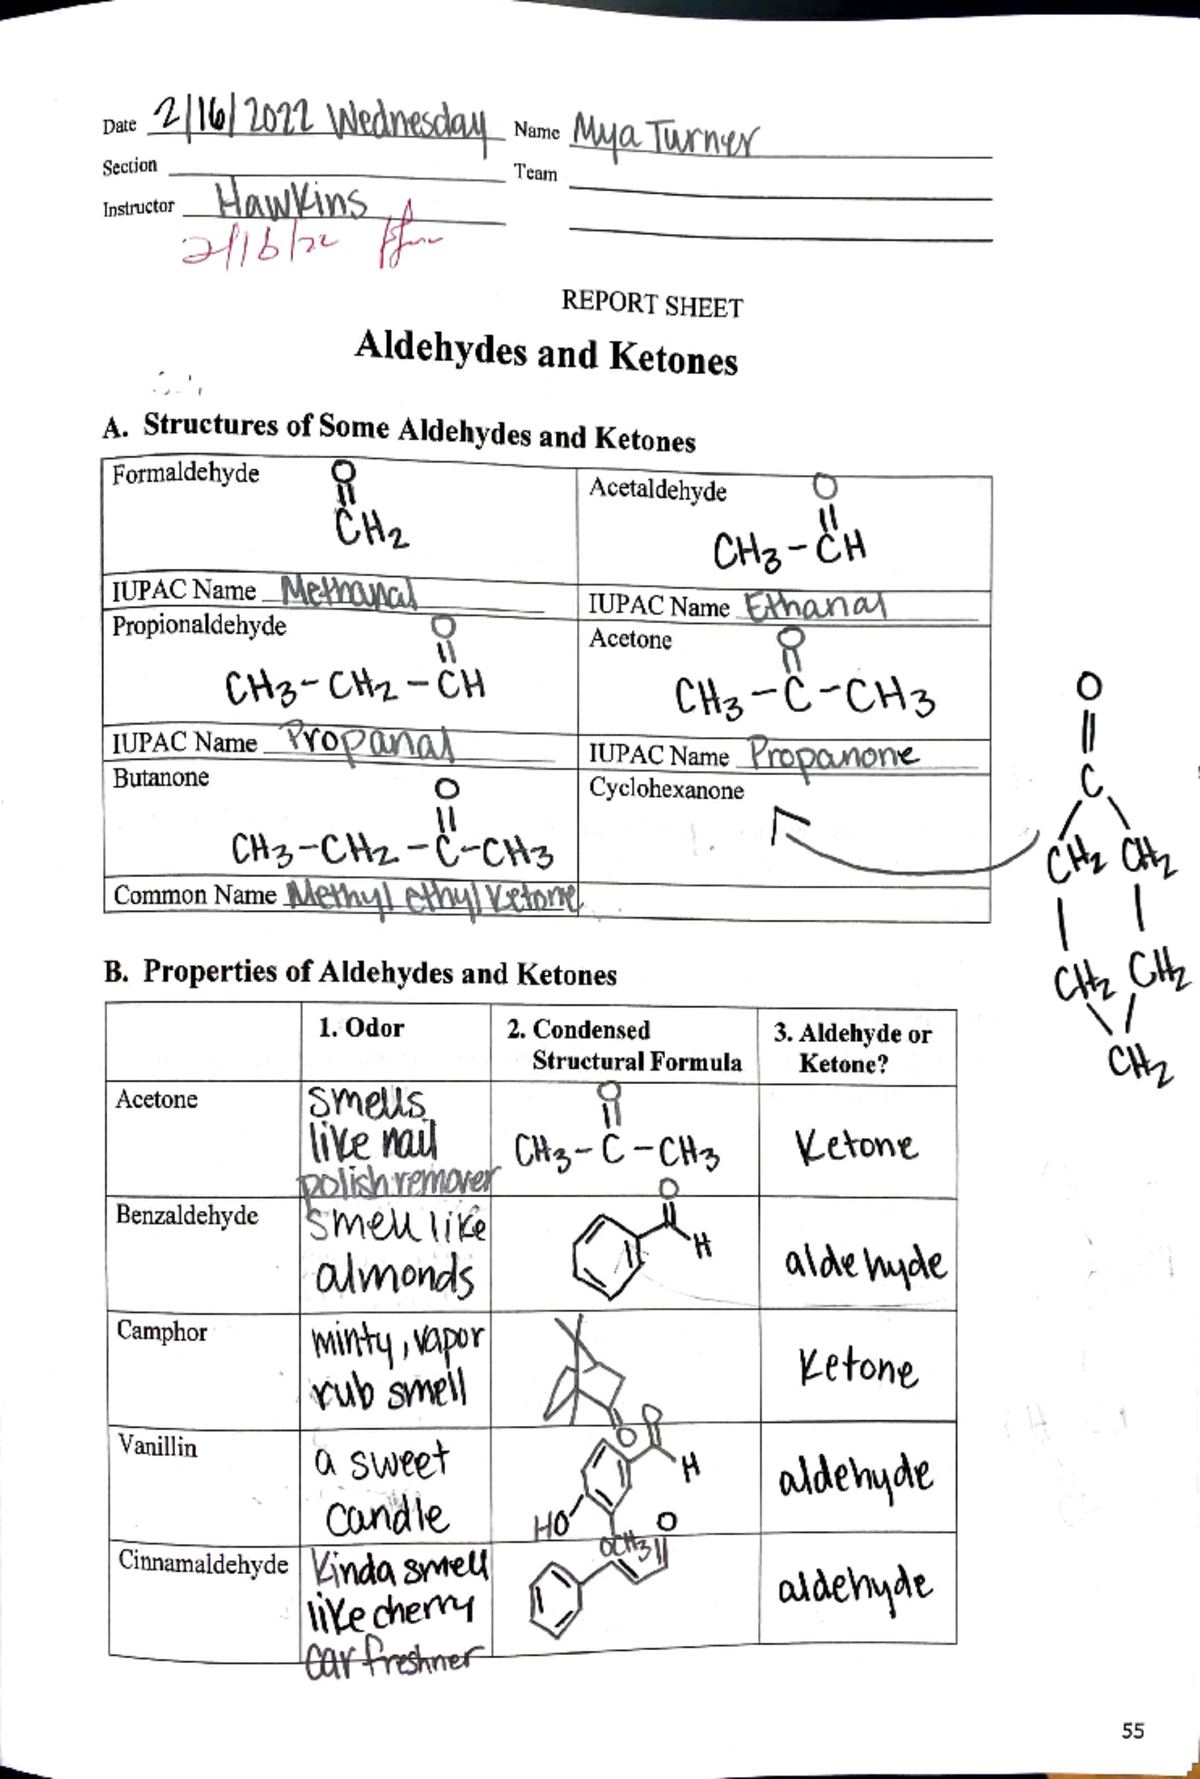 Date 2/16/2022 Wednesday Name Mya Turner
Section Team
Instructor Hawkins
2/16/22
REPORT SHEET
Aldehydes and Ketones
A. Structures of Some Aldehydes and Ketones
Formaldehyde
O
CH2
Acetaldehyde
O
CH3-CH
IUPAC Name Methanal
IUPAC Name Ethanal
Propionaldehyde
O
CH3-CH2-CH
Acetone
O
CH3-C-CH3
IUPAC Name Propanal
IUPAC Name Propanone
Butanone
O
CH3-CH2-C-CH3
Cyclohexanone
O
C
CH2 CH2
CH2 CH2
CH2
Common Name Methyl ethyl Ketone
B. Properties of Aldehydes and Ketones
1. Odor
2. Condensed
Structural Formula
3. Aldehyde or
Ketone?
Acetone
smells
like nail
polish remover
O
CH3-C-CH3
Ketone
Benzaldehyde
smell like
almonds
O
H
aldehyde
Camphor
minty, vapor
rub smell
O
Ketone
Vanillin
a sweet
candle
O
H
HO
OCH3
aldehyde
Cinnamaldehyde
Kinda smell
like cherry
car freshner
O
aldehyde
55